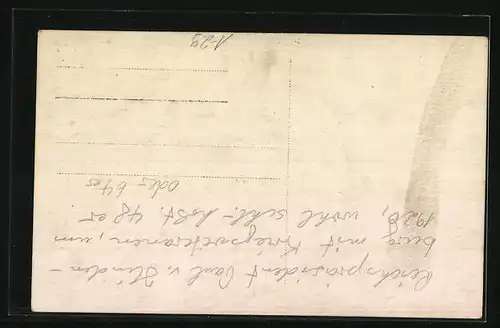 Reichspräsident Paul v. Hinden-
burg mit Kriegsveteranen, um
1926, wohl schl.-holst. 48 er
oder 64 er
1-29